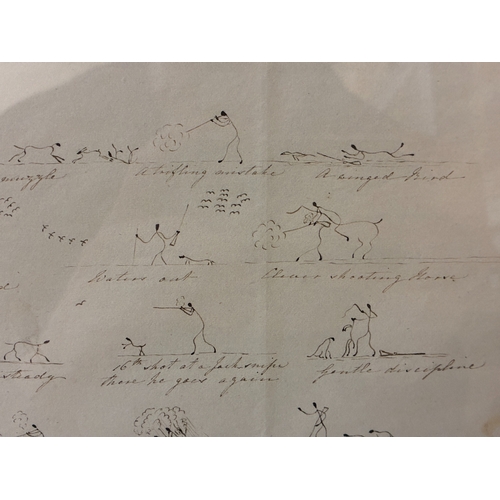 muzzle
A trifling mistake
A winged Bird
Waters out
Clever shooting Horse
steady
16th shot at a Jack snipe
there he goes again
Gentle discipline